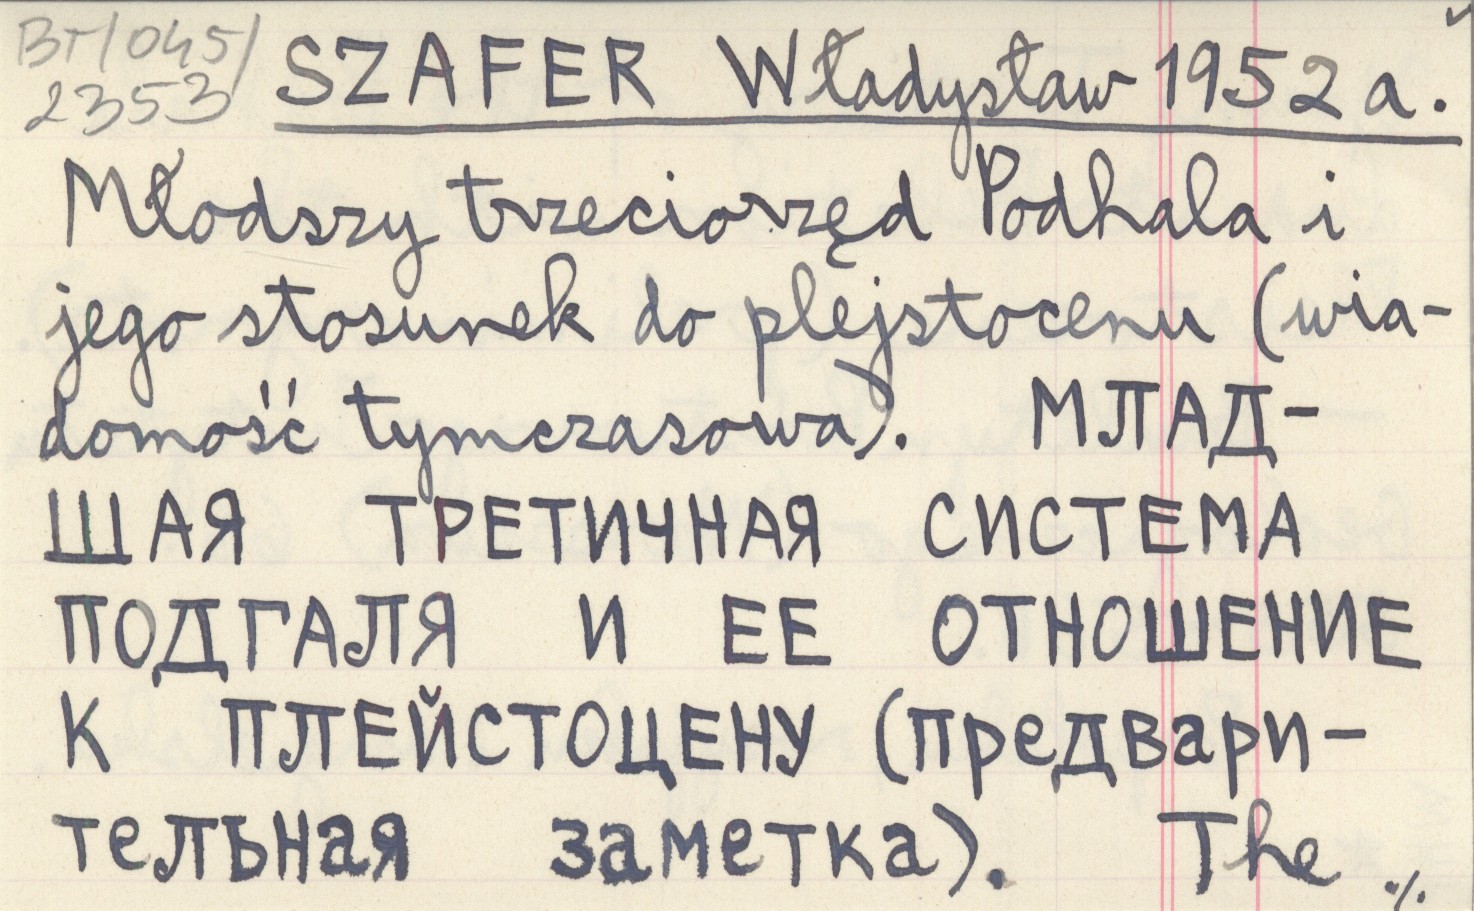 Вт/045/
2353
SZAFER Władysław 1952a.
Młodszy trzeciorzęd Podhala i
jego stosunek do plejstocenu (wia-
domość tymczasowa). МЛАД-
ШАЯ ТРЕТИЧНАЯ СИСТЕМА
ПОДГАЛЯ И ЕЕ ОТНОШЕНИЕ
К ПЛЕЙСТОЦЕНУ (предвари-
тельная заметка). The ./.